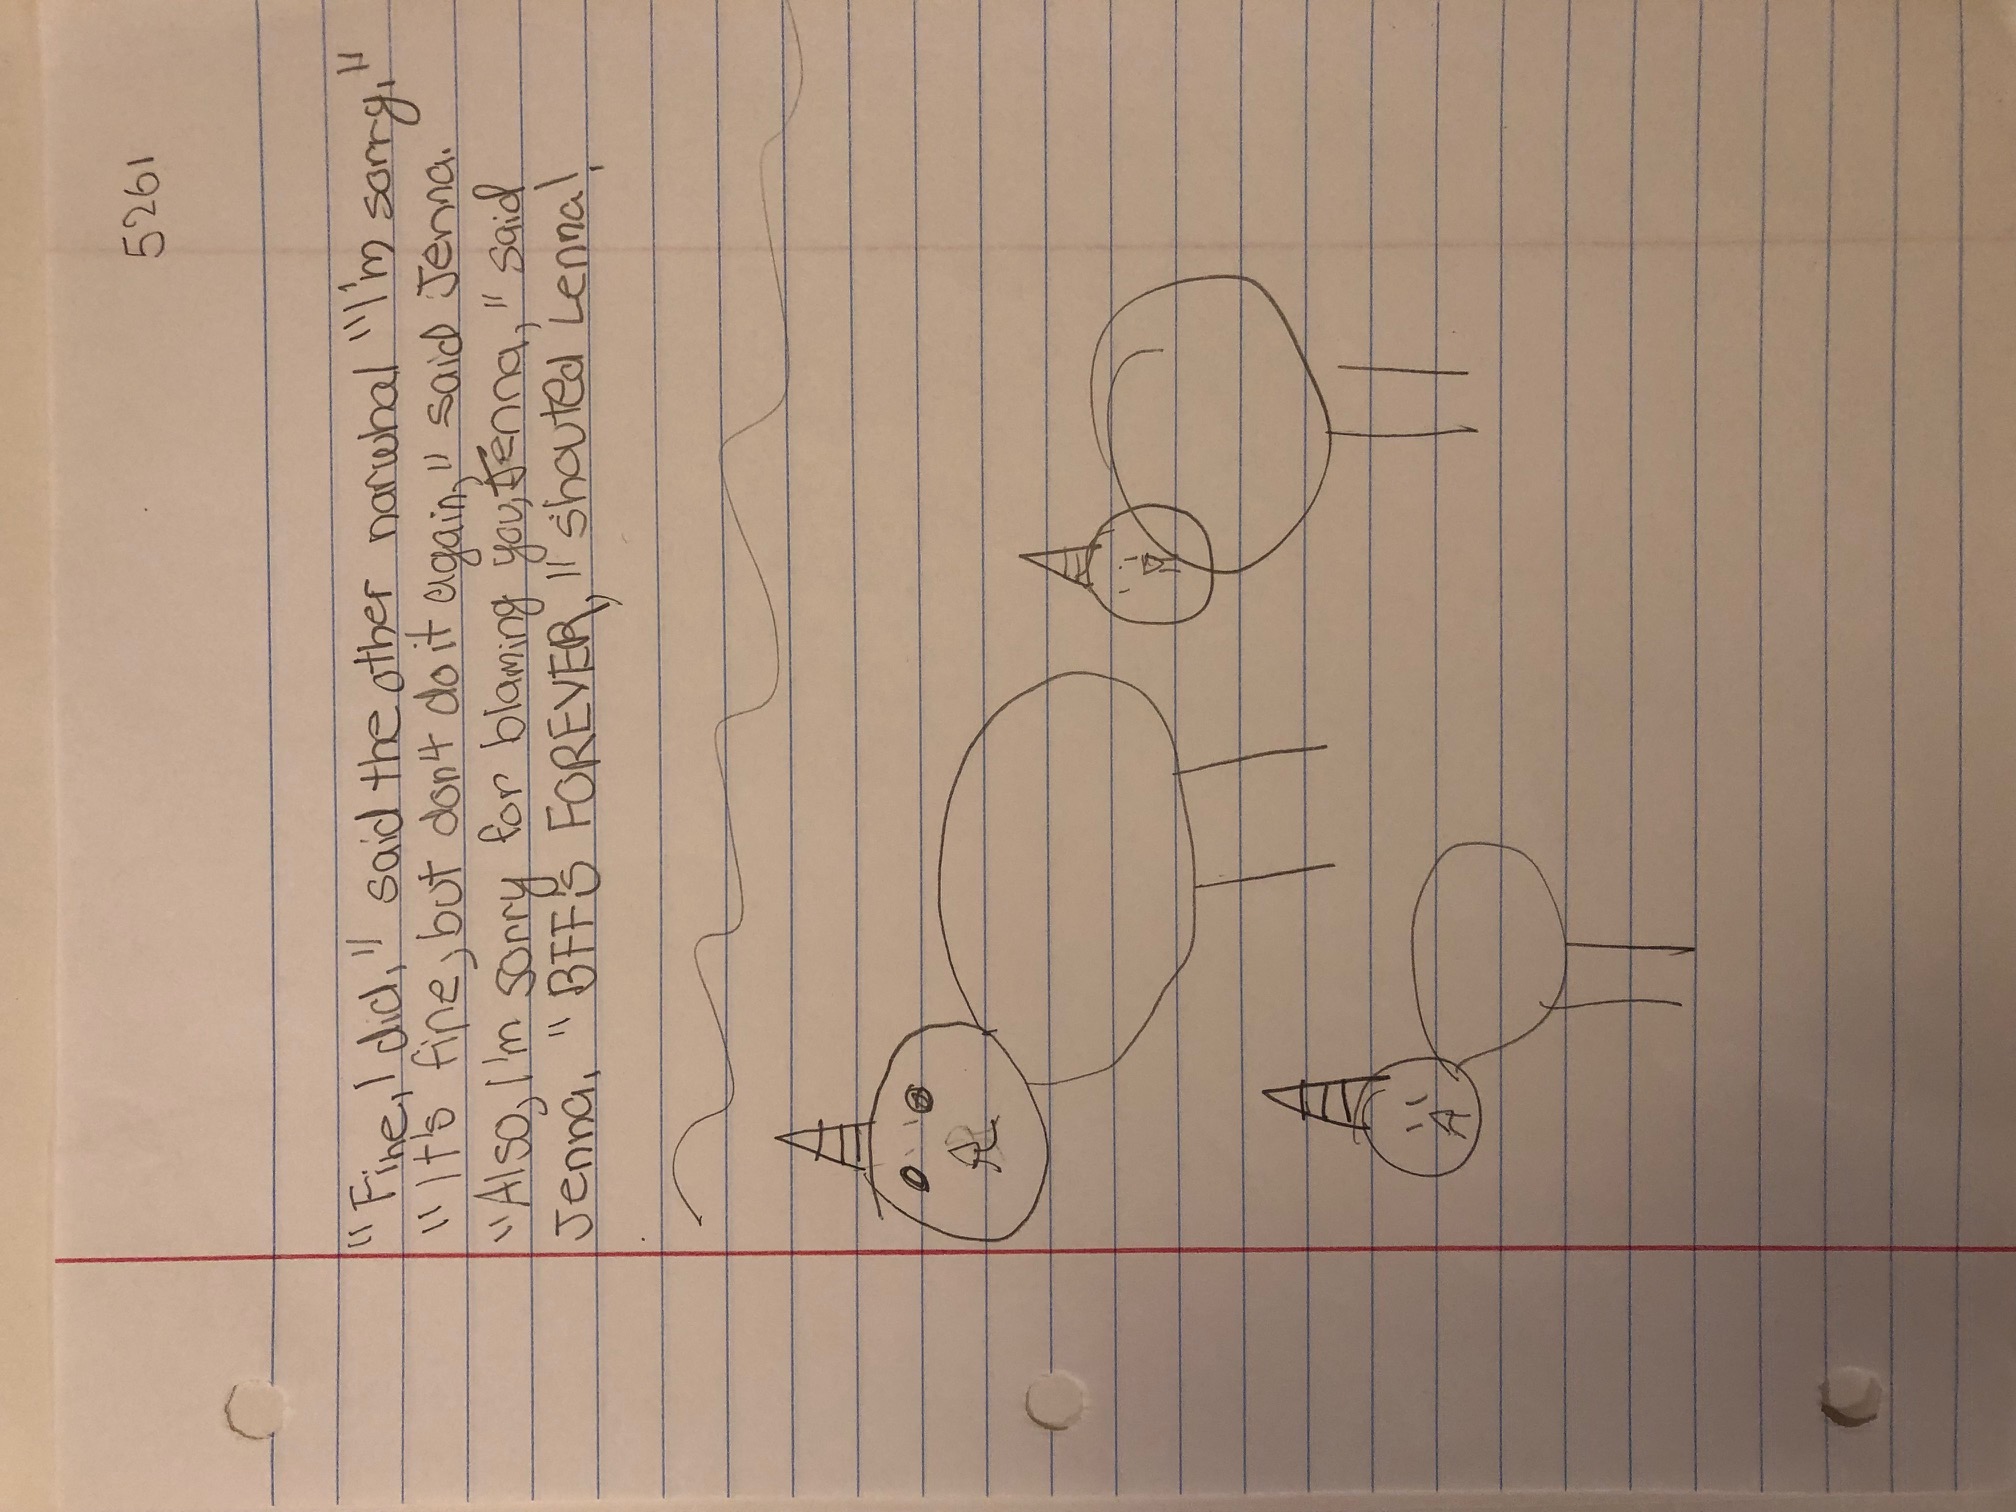 5261
"Fine, I did," said the other narwhal "I'm sorry,"
"It's fine, but don't do it again," said Jenna.
"Also, I'm sorry for blaming you, Jenna," said
Jenna. "BFF's FOREVER," shouted Lenna!